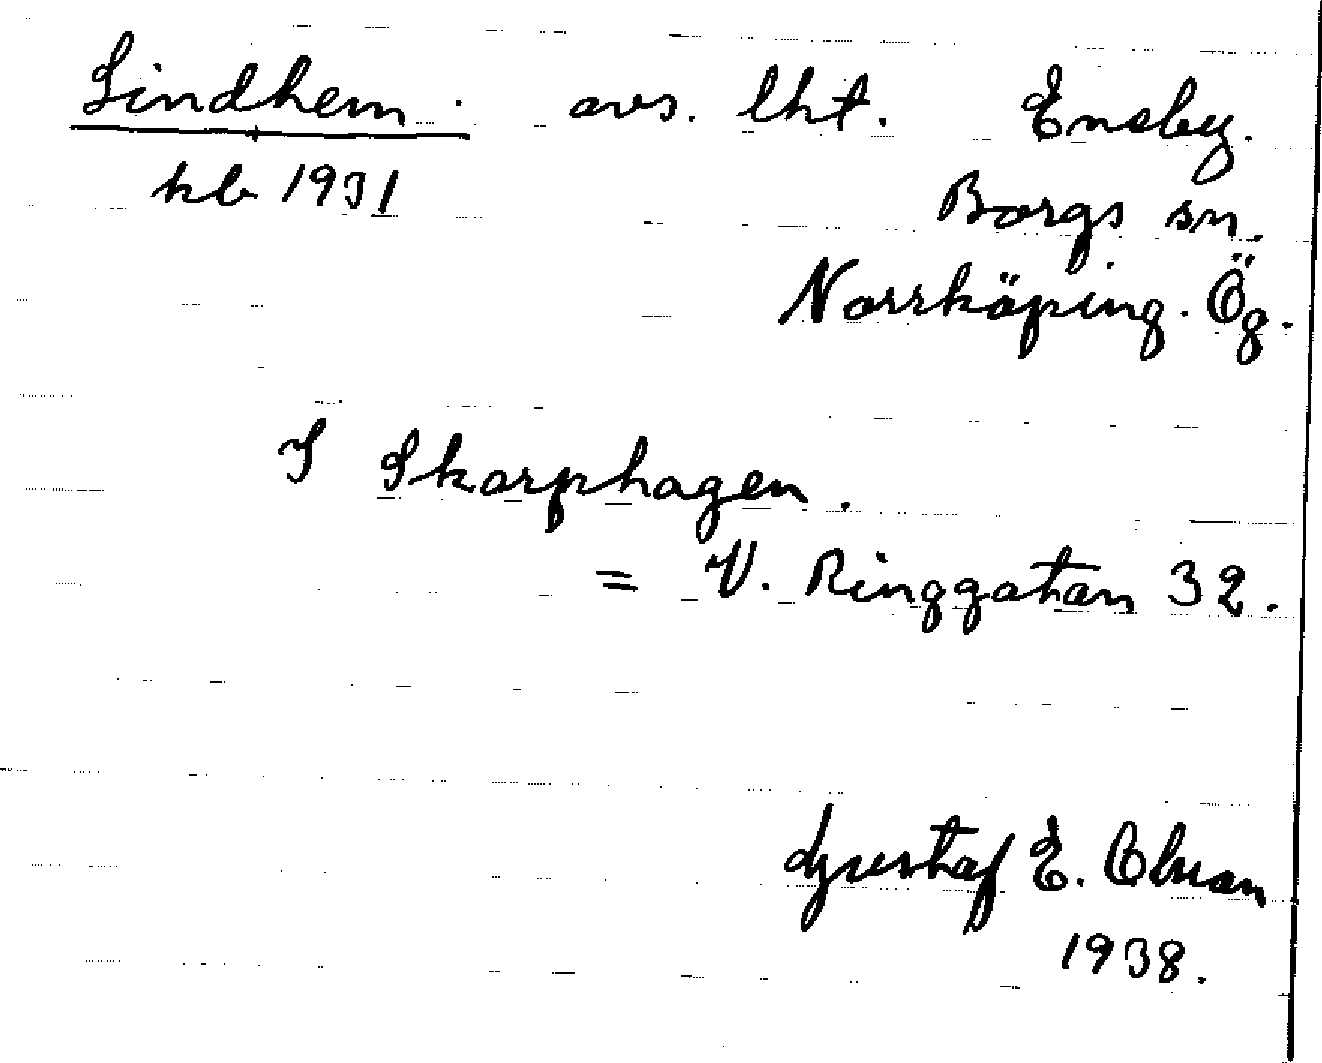 Lindhem. avs. lht. Ensby.
kb 1931
Borgs sn.
Norrköping. Ög.
I Skarphagen.
= V. Ringgatan 32.
Gustaf E. Olsson
1938.